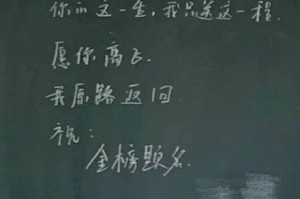 你的这一生,我只送这一程.
愿你高飞.
我原路返回.
祝:
金榜题名.